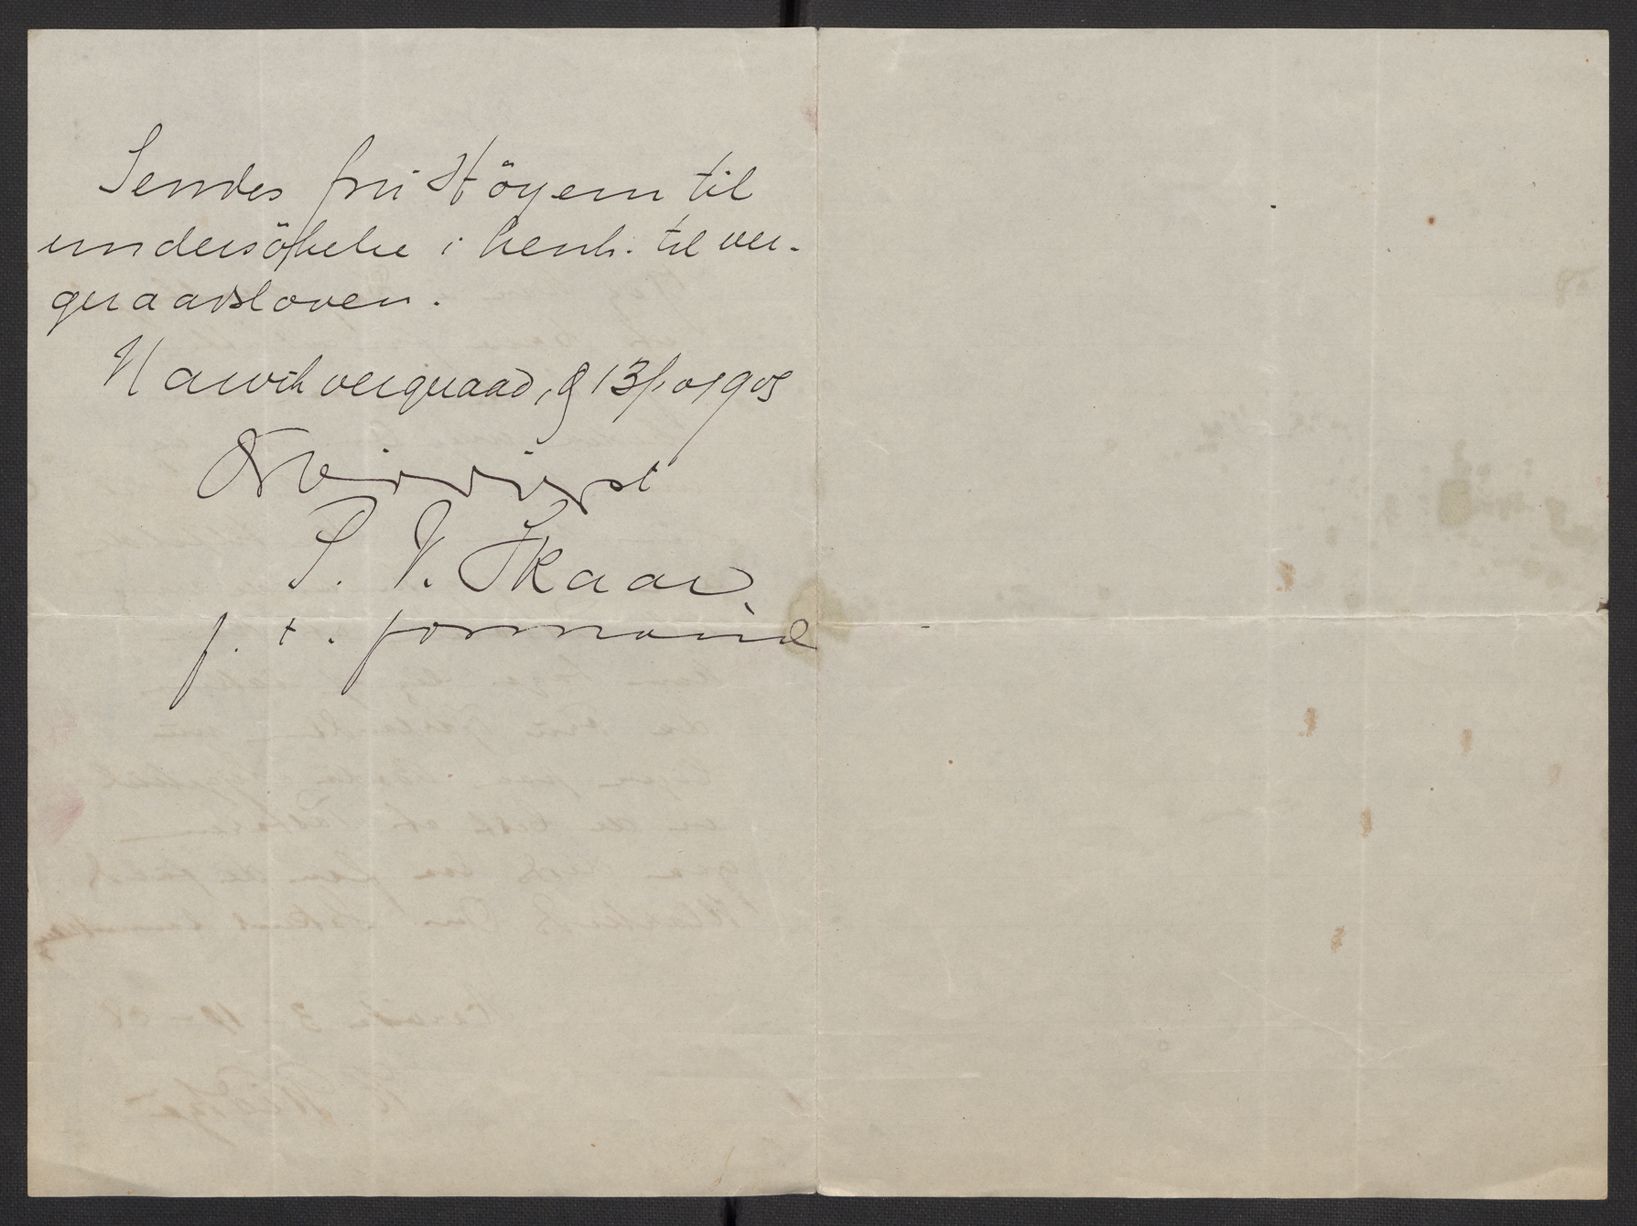 Sendes fru Höyem til
undersökelse i henh. til ver-
geraadsloven.
Narvik vergeraad, d 13/10 1908
Ærbödigst
S. N. Skaar.
f. t. formand